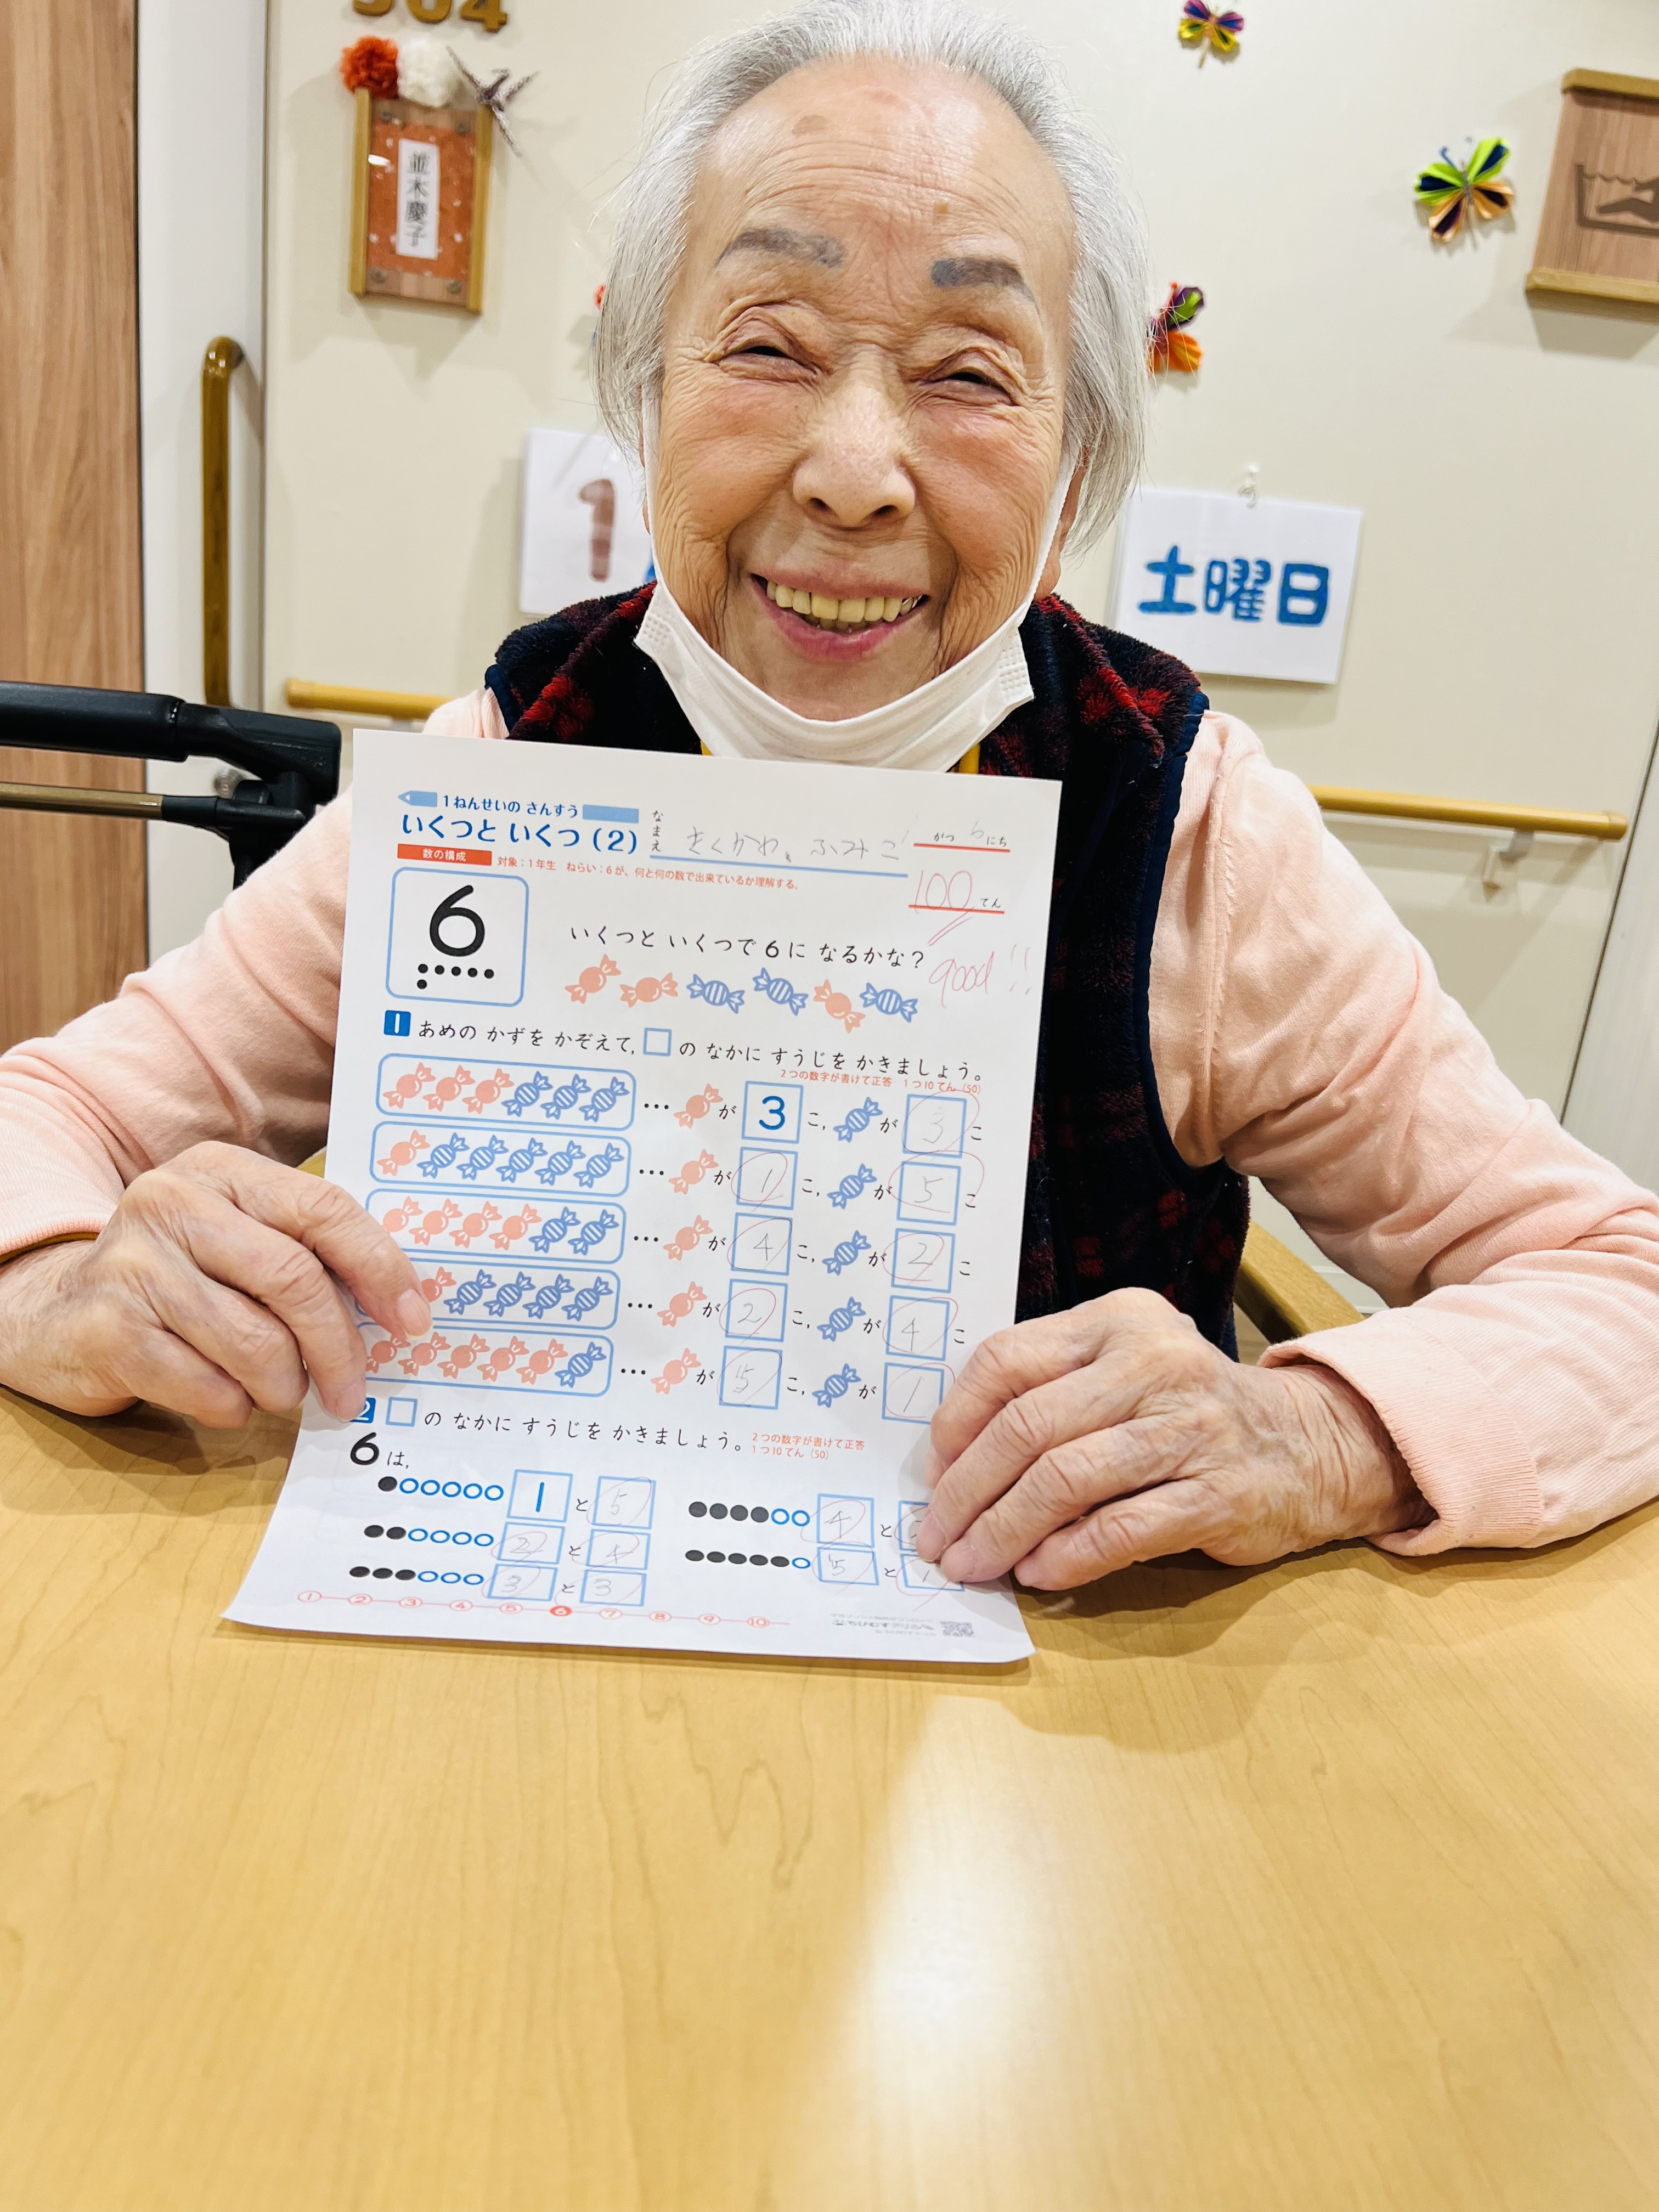 504
並木慶子
1
土曜日
1ねんせいの さんすう
いくつと いくつ (2)
なまえ きくかわ ふみこ
1 がつ 6 にち
数の構成 対象：1年生 ねらい：6が、何と何の数で出来ているか理解する。
100 てん
good!!
6
いくつと いくつで 6に なるかな？
1 あめの かずを かぞえて, □の なかに すうじを かきましょう。
2つの数字が書けて正答 1つ10てん (50)
… が 3 こ, が 3 こ
… が 1 こ, が 5 こ
… が 4 こ, が 2 こ
… が 2 こ, が 4 こ
… が 5 こ, が 1
2 □の なかに すうじを かきましょう。
2つの数字が書けて正答
1つ10てん (50)
6は,
1 と 5
2 と 4
3 と 3
4 と
5 と 1
1 2 3 4 5 6 7 8 9 10